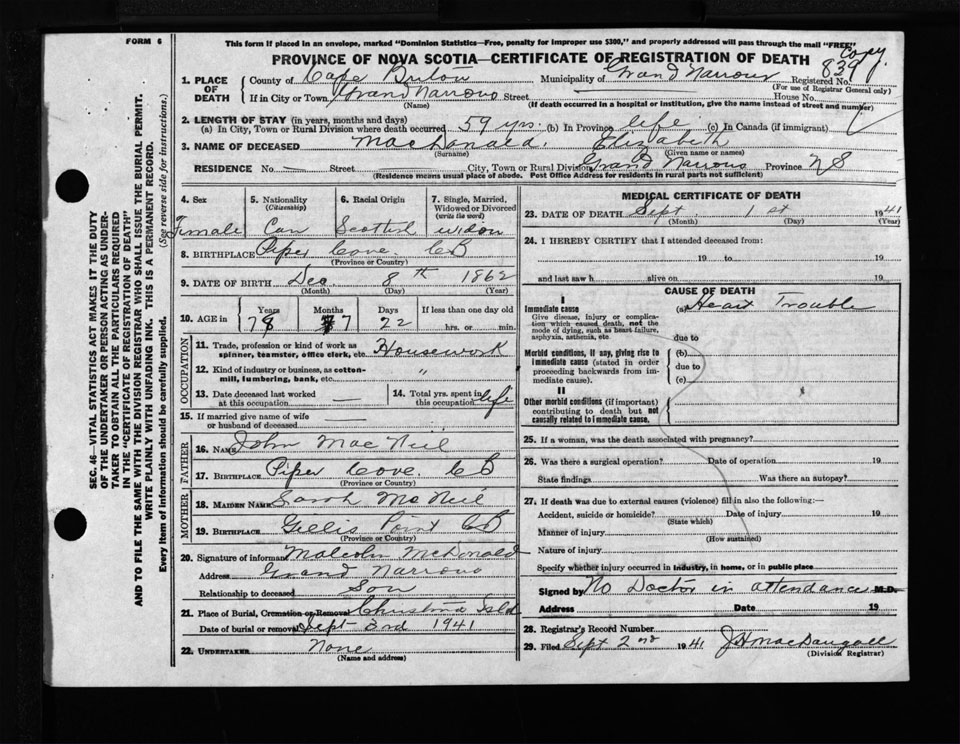 FORM 6
This form if placed in an envelope, marked "Dominion Statistics—Free, penalty for improper use $300," and properly addressed will pass through the mail "FREE"
PROVINCE OF NOVA SCOTIA—CERTIFICATE OF REGISTRATION OF DEATH
Copy.
839
1. PLACE OF DEATH
County of Cape Breton Municipality of Grand Narrows Registered No.
(For use of Registrar General only)
If in City or Town Grand Narrows Street House No.
(Name) (If death occurred in a hospital or institution, give the name instead of street and number)
2. LENGTH OF STAY (in years, months and days)
(a) In City, Town or Rural Division where death occurred 59 yrs. (b) In Province life (c) In Canada (if immigrant)
3. NAME OF DECEASED MacDonald, Elizabeth
(Surname) (Given name or names)
RESIDENCE No. — Street City, Town or Rural Division Grand Narrows Province NS
(Residence means usual place of abode. Post Office Address for residents in rural parts not sufficient)
4. Sex 5. Nationality (Citizenship) 6. Racial Origin 7. Single, Married, Widowed or Divorced (write the word)
Female Can Scottish widow
8. BIRTHPLACE Piper Cove CB
(Province or Country)
9. DATE OF BIRTH Dec 8th 1862
(Month) (Day) (Year)
10. AGE in Years Months Days If less than one day old
78 7 22 hrs. or min.
OCCUPATION
11. Trade, profession or kind of work as spinner, teamster, office clerk, etc. Housework
12. Kind of industry or business, as cotton-mill, lumbering, bank, etc. "
13. Date deceased last worked at this occupation — 14. Total yrs. spent in this occupation life
15. If married give name of wife or husband of deceased
FATHER
16. NAME John Mac Neil
17. BIRTHPLACE Piper Cove. CB
(Province or Country)
MOTHER
18. MAIDEN NAME Sarah Mc Neil
19. BIRTHPLACE Gillis Point CB
(Province or Country)
20. Signature of informant Malcolm McDonald
Address Grand Narrows
Relationship to deceased Son
21. Place of Burial, Cremation or Removal Christmas Isld
Date of burial or removal Sept 3rd 1941
22. UNDERTAKER None
(Name and address)
MEDICAL CERTIFICATE OF DEATH
23. DATE OF DEATH Sept, 1st 1941
(Month) (Day) (Year)
24. I HEREBY CERTIFY that I attended deceased from:
19 to 19
and last saw h alive on 19
CAUSE OF DEATH
I
Immediate cause (a) Heart Trouble
Give disease, injury or complication which caused death, not the mode of dying, such as heart failure, asphyxia, asthenia, etc.
due to
Morbid conditions, if any, giving rise to immediate cause (stated in order proceeding backwards from immediate cause).
(b)
due to
(c)
II
Other morbid conditions (if important) contributing to death but not causally related to immediate cause.
25. If a woman, was the death associated with pregnancy?
26. Was there a surgical operation? Date of operation 19
State findings Was there an autopsy?
27. If death was due to external causes (violence) fill in also the following:—
Accident, suicide or homicide? Date of injury 19
(State which)
Manner of injury
(How sustained)
Nature of injury
Specify whether injury occurred in industry, in home, or in public place
Signed by No Doctor in attendance M.D.
Address Date 19
28. Registrar's Record Number
29. Filed Sept 2nd 1941 J H MacDougall
(Division Registrar)
SEC. 46—VITAL STATISTICS ACT MAKES IT THE DUTY
OF THE UNDERTAKER OR PERSON ACTING AS UNDER-
TAKER TO OBTAIN ALL THE PARTICULARS REQUIRED
IN THE "CERTIFICATE OF REGISTRATION OF DEATH"
AND TO FILE THE SAME WITH THE DIVISION REGISTRAR WHO SHALL ISSUE THE BURIAL PERMIT.
WRITE PLAINLY WITH UNFADING INK. THIS IS A PERMANENT RECORD.
Every item of information should be carefully supplied. (See reverse side for instructions.)